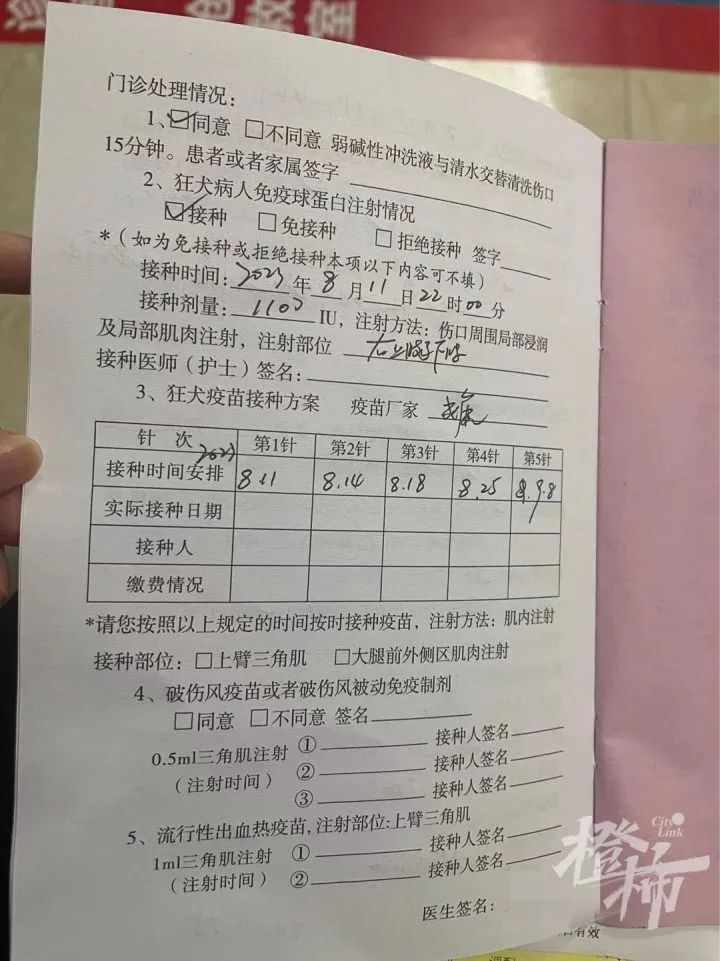 教室
门诊处理情况：
1、☑同意 □不同意 弱碱性冲洗液与清水交替清洗伤口
15分钟。患者或者家属签字
2、狂犬病人免疫球蛋白注射情况
☑接种 □免接种 □拒绝接种 签字
*（如为免接种或拒绝接种本项以下内容可不填）
接种时间：2023年8月11日22时00分
接种剂量：1100 IU，注射方法：伤口周围局部浸润
及局部肌肉注射，注射部位
接种医师（护士）签名：
3、狂犬疫苗接种方案 疫苗厂家
针 次 2023 第1针 第2针 第3针 第4针 第5针
接种时间安排 8.11 8.14 8.18 8.25 9.8
实际接种日期
接种人
缴费情况
*请您按照以上规定的时间按时接种疫苗，注射方法：肌内注射
接种部位：□上臂三角肌 □大腿前外侧区肌肉注射
4、破伤风疫苗或者破伤风被动免疫制剂
□同意 □不同意 签名
0.5ml三角肌注射 ① 接种人签名
（注射时间） ② 接种人签名
③ 接种人签名
5、流行性出血热疫苗,注射部位:上臂三角肌
1ml三角肌注射 ① 接种人签名
（注射时间） ② 接种人签名
医生签名：
有效
City Link
橙柿